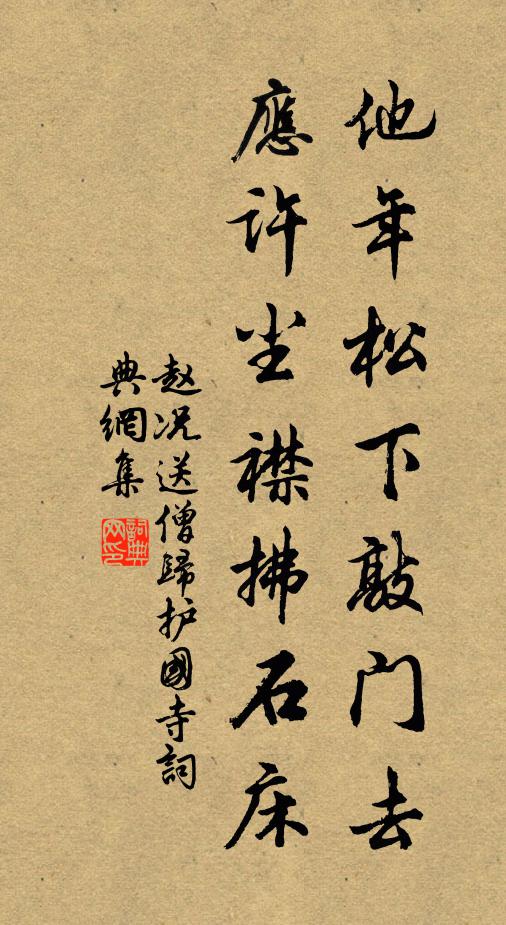 他年松下敲门去
應许尘襟拂石床
赵况送僧歸护國寺詞
典網集
詞典网印